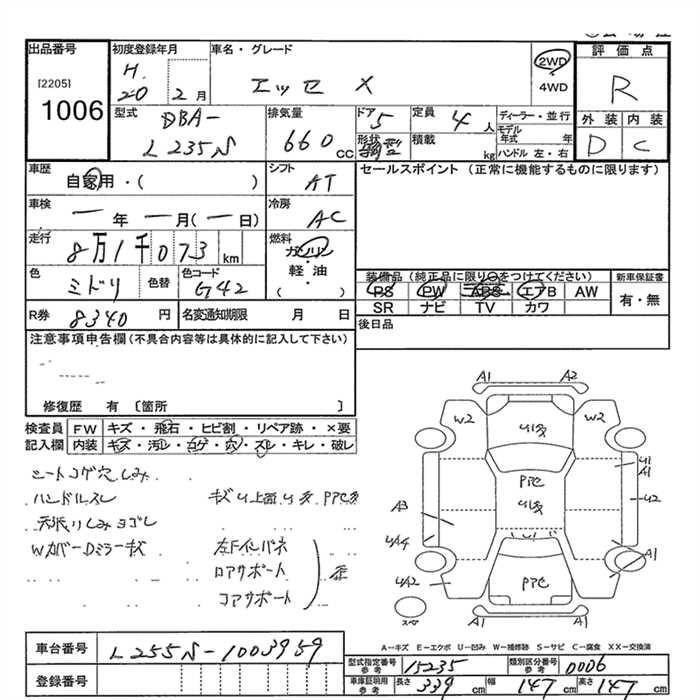 出品番号
[2205]
1006
初度登録年月
H.
20 2月
車名・グレード
エッセ X
2WD
4WD
評価点
R
外装 内装
D C
型式
DBA-
L235S
排気量
660 CC
ドア
5
形状
定員
4人
積載
kg
ディーラー・並行
モデル
年式 年
ハンドル 左・右
車歴
自家用・( )
シフト
AT
セールスポイント (正常に機能するものに限ります)
車検
一年 一月(一日)
冷房
AC
走行
8万1千073 km
燃料
ガソリン
軽・油
( )
色
ミドリ
色替
色コード
G42
装備品(純正品に限り○をつけてください)
PS PW ABS エアB AW
SR ナビ TV カワ
新車保証書
有・無
R券 8340円
名変通知期限 月 日
後日品
注意事項申告欄(不具合内容等は具体的に記入して下さい)
修復歴 有〔箇所 〕
検査員
記入欄
FW キズ・飛石・ヒビ割・リペア跡・×要
内装 キズ・汚レ・コゲ・穴・スレ・キレ・破レ
シートコゲ穴しみ
ハンドルスレ
キズU上面U多 PPC多
天張りしみヨゴレ
WカバーDミラーキズ
左Fインパネ
ロアサポート
コアサポート
歪
A1 A2
W2 W2
U1多
U1
A1
PPC
U1多
U2
A3
UA4
A1
UA2
PPC
スペア
A1 A1
A-キズ E-エクボ U-凹み W-補修跡 S-サビ C-腐食 XX-交換済
車台番号
L255S-1003959
登録番号
型式指定番号
参考
15235
類別区分番号
参考
0006
車庫証明用
参考
長さ 339 cm
幅 147 cm
高さ 147 cm